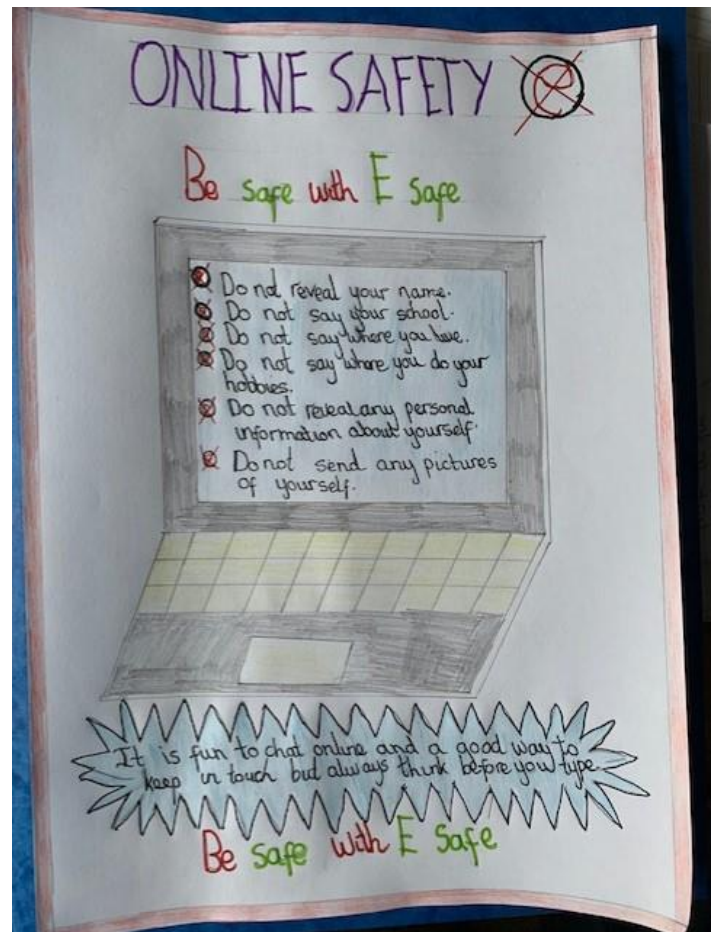 ONLINE SAFETY
Be safe with E safe
Do not reveal your name.
Do not say your school.
Do not say where you live.
Do not say where you do your
hobbies.
Do not reveal any personal
information about yourself.
Do not send any pictures
of yourself.
It is fun to chat online and a good way to
keep in touch but always think before you type.
Be safe with E safe